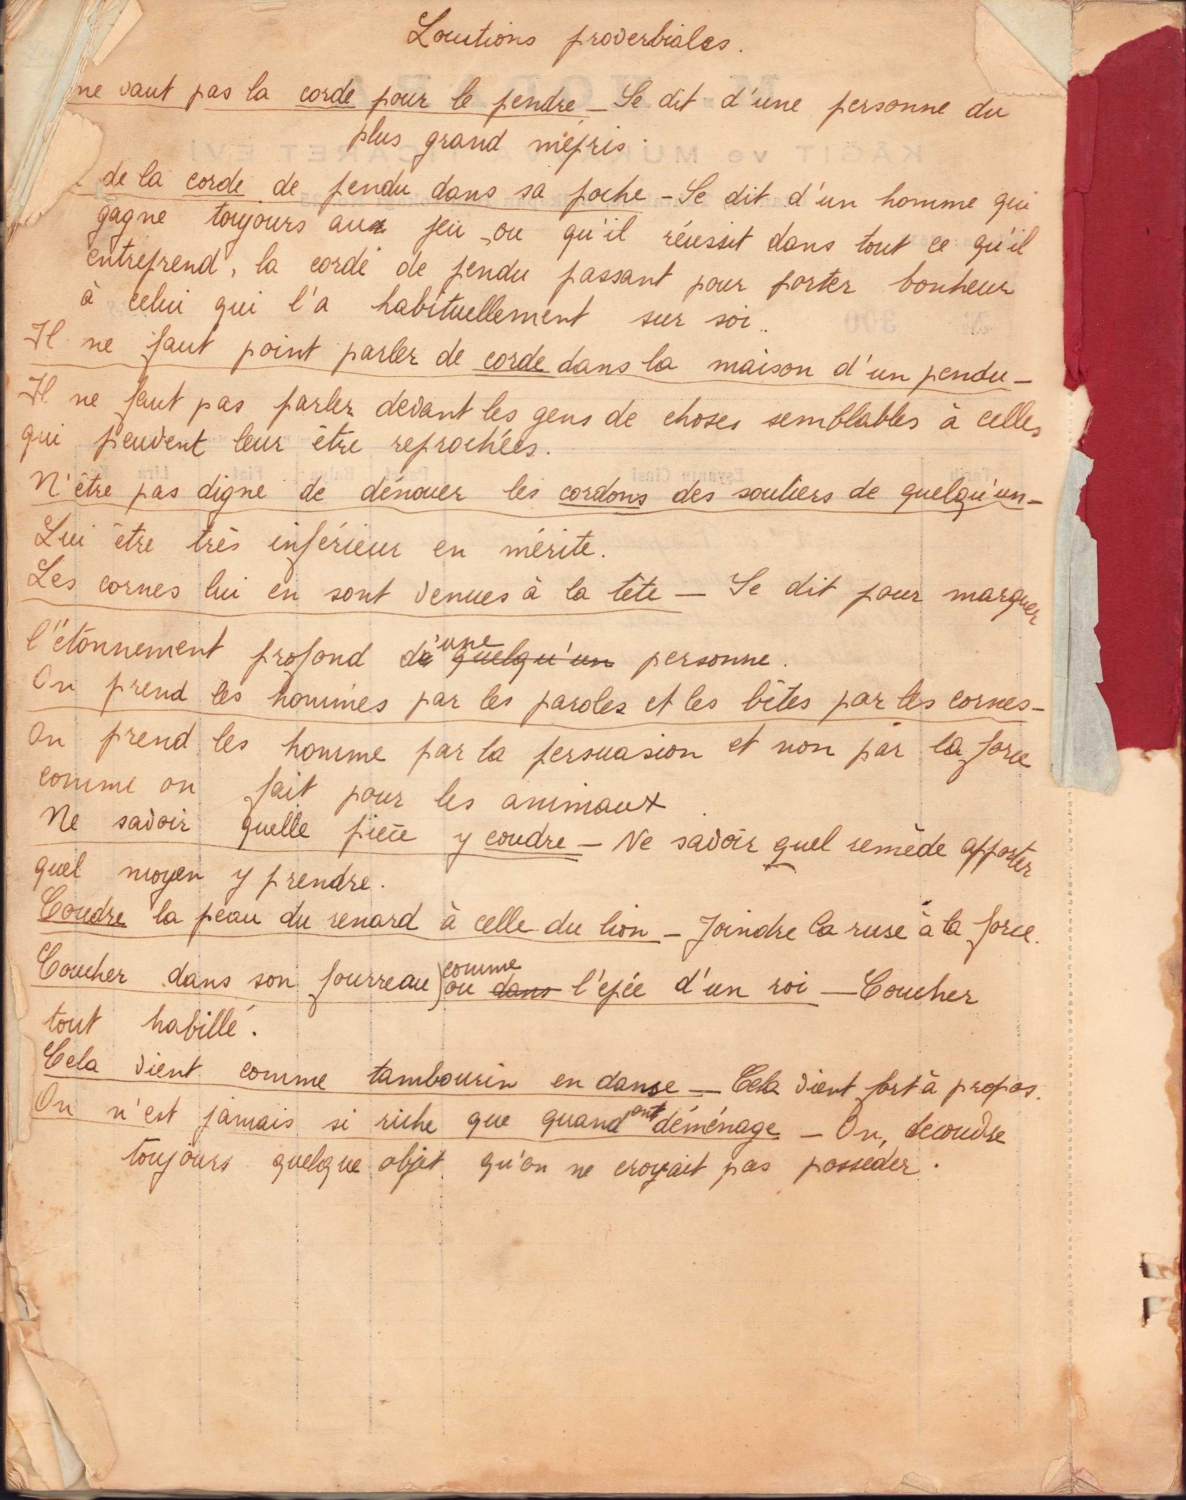 Locutions proverbiales.
ne vaut pas la corde pour le pendre – Se dit d'une personne du
plus grand mépris.
de la corde de pendu dans sa poche – Se dit d'un homme qui
gagne toujours aux jeu ou qu'il réussit dans tout ce qu'il
entreprend, la corde de pendu passant pour porter bonheur
à celui qui l'a habituellement sur soi.
Il ne faut point parler de corde dans la maison d'un pendu –
Il ne faut pas parler devant les gens de choses semblables à celles
qui peuvent leur être reprochées.
N'être pas digne de dénouer les cordons des souliers de quelqu'un –
Lui être très inférieur en mérite.
Les cornes lui en sont venues à la tête – Se dit pour marquer
l'étonnement profond d'une quelqu'un personne.
On prend les hommes par les paroles et les bêtes par les cornes –
On prend les homme par la persuasion et non par la force
comme on fait pour les animaux.
Ne savoir quelle pièce y coudre – Ne savoir quel remède apporter
quel moyen y prendre.
Coudre la peau du renard à celle du lion – Joindre la ruse à la force.
Coucher dans son fourreau) comme ou dans l'epée d'un roi – Coucher
tout habillé.
Cela vient comme tambourin en danse – Cela vient fort à propos.
On n'est jamais si riche que quand on déménage – On, decouvre
toujours quelque objet qu'on ne croyait pas posséder.
KÂĞIT ve
300